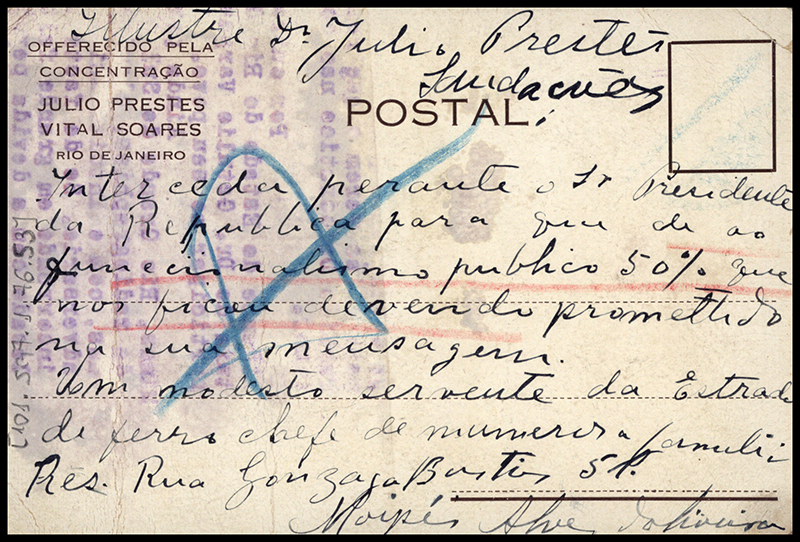 Illustre Dr. Julio Prestes
Saudações
OFFERECIDO PELA
CONCENTRAÇÃO
JULIO PRESTES
VITAL SOARES
RIO DE JANEIRO
POSTAL
Interceda perante o Sr Presidente
da Republica para que de ao
funccionalismo publico 50% que
nos ficou devendo promettido
na sua mensagem.
Um modesto servente da Estrada
de ferro chefe de numerosa familia
Res. Rua Gonzaga Bastos
Alves